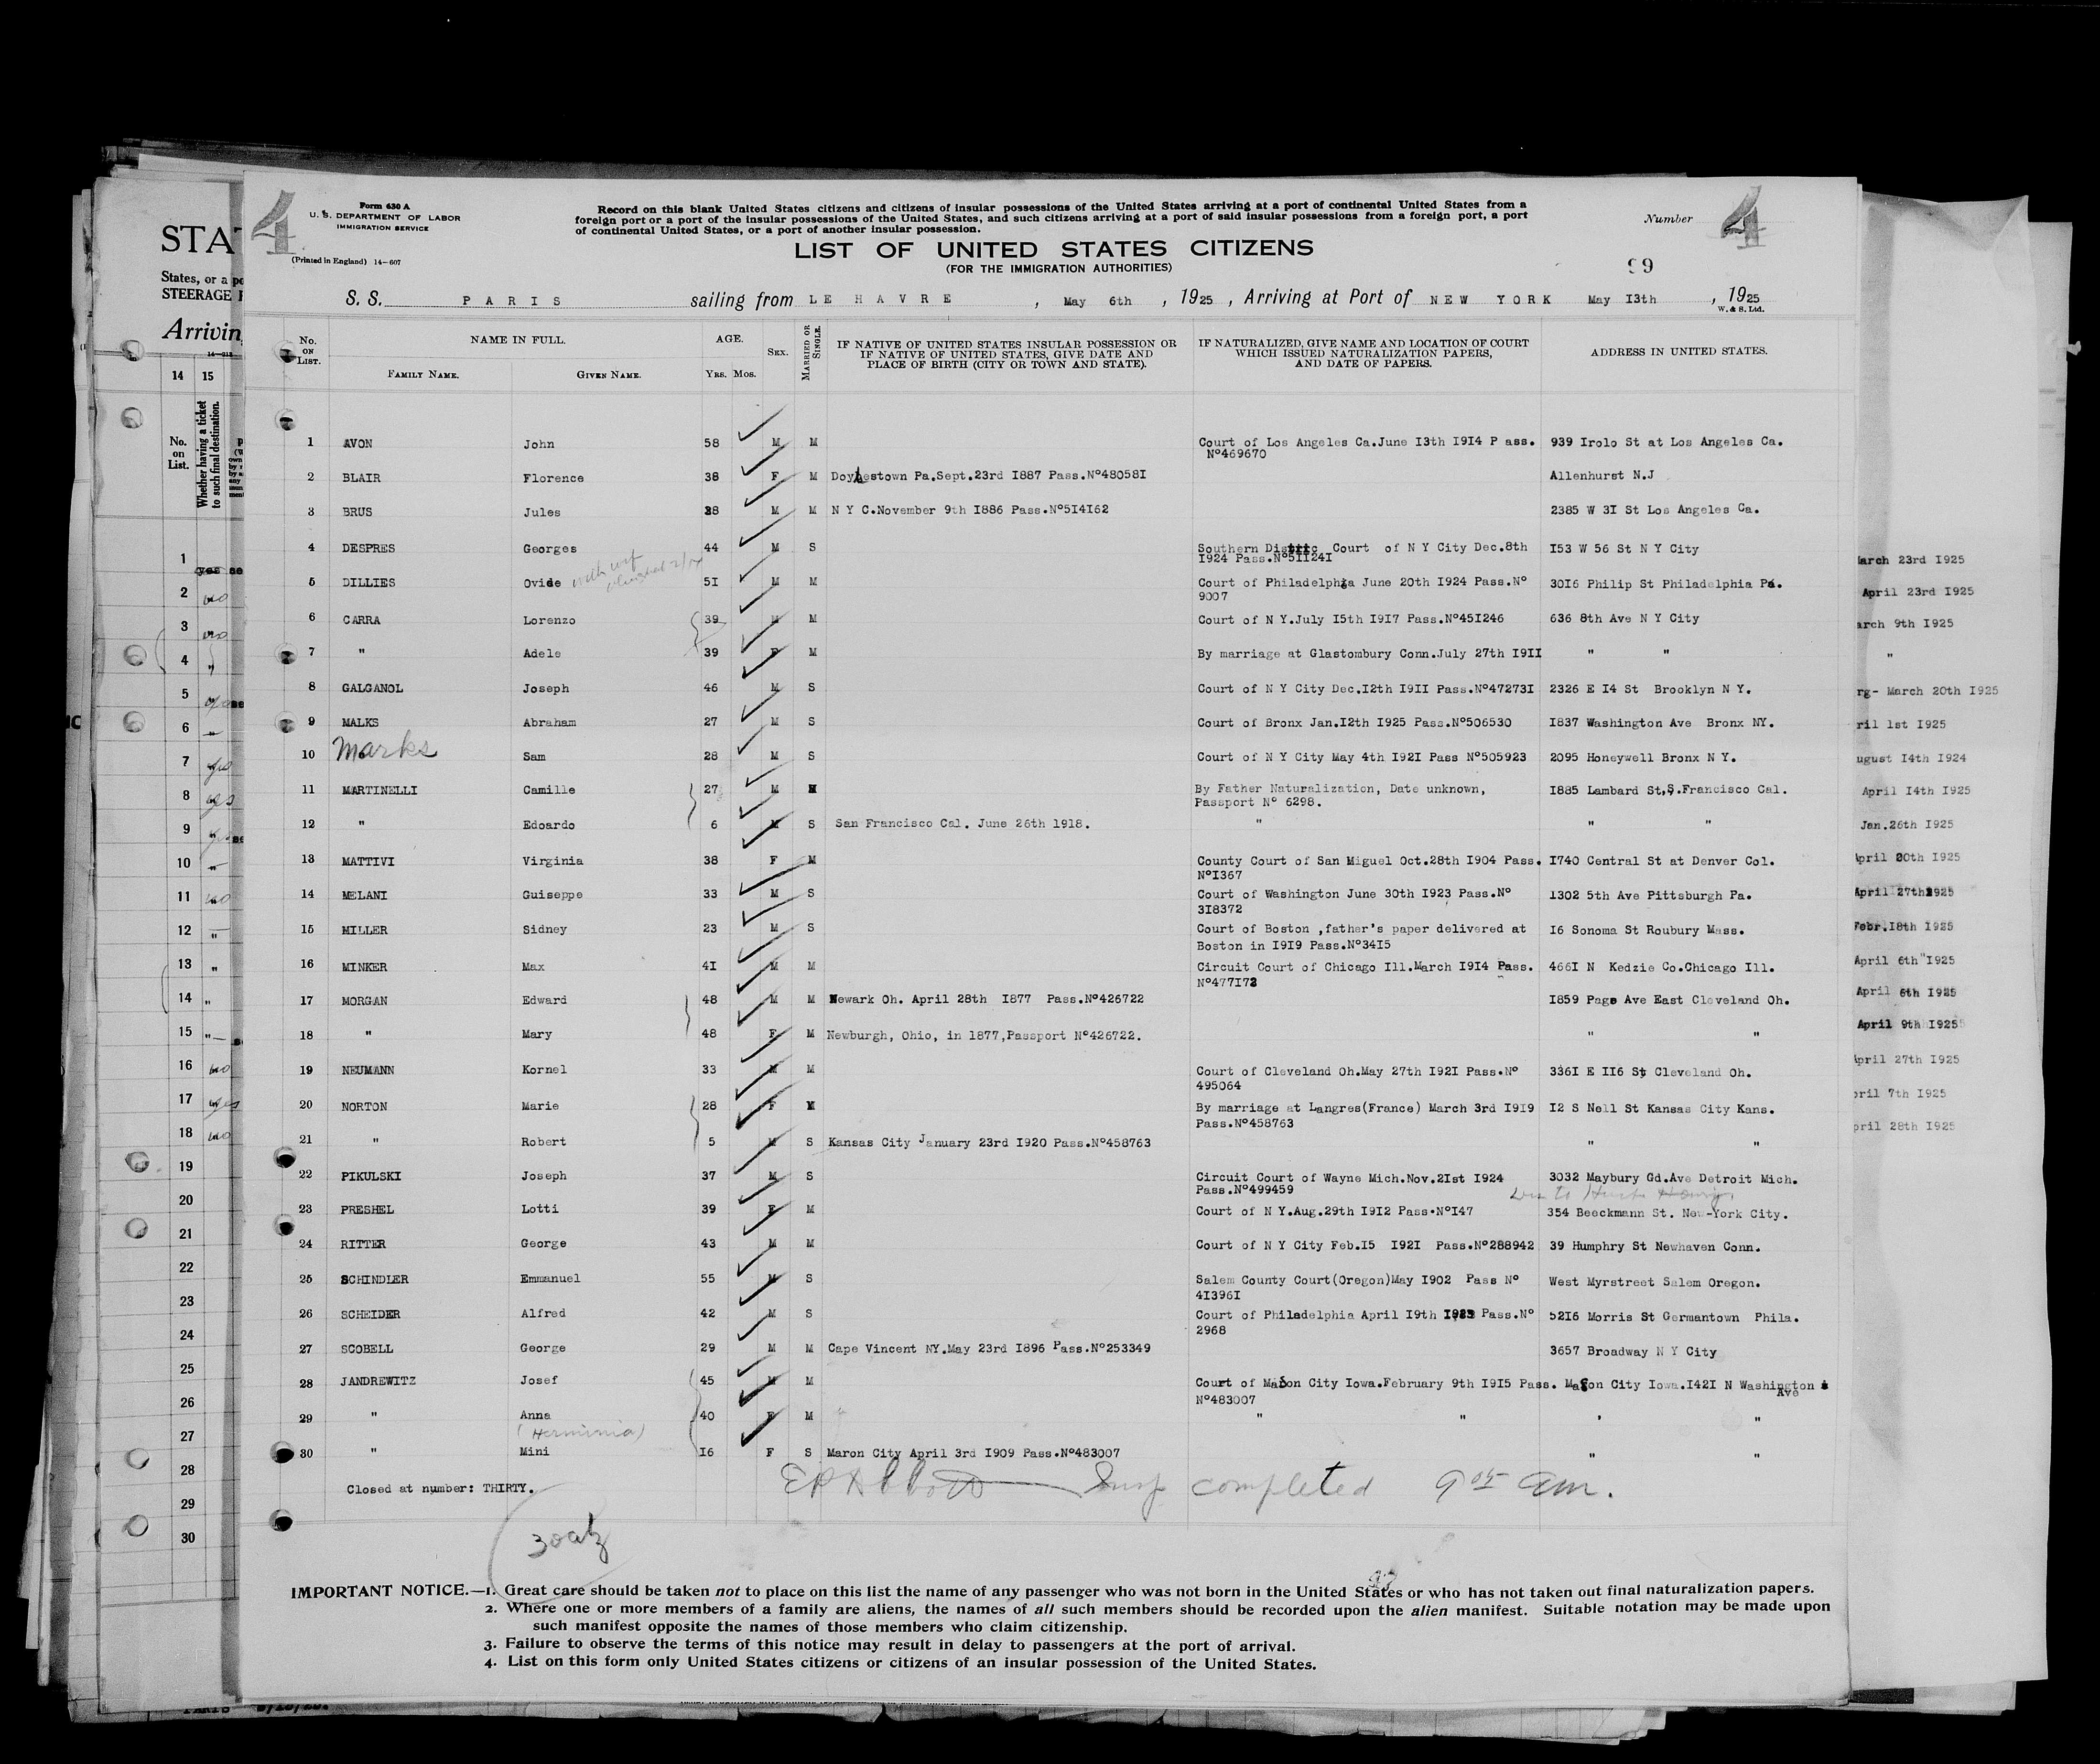 4
Form 630 A
U. S. DEPARTMENT OF LABOR
IMMIGRATION SERVICE
(Printed in England) 14-607
Record on this blank United States citizens and citizens of insular possessions of the United States arriving at a port of continental United States from a
foreign port or a port of the insular possessions of the United States, and such citizens arriving at a port of said insular possessions from a foreign port, a port
of continental United States, or a port of another insular possession.
Number 4
LIST OF UNITED STATES CITIZENS
(FOR THE IMMIGRATION AUTHORITIES)
99
S. S. PARIS sailing from LE HAVRE , May 6th , 1925 , Arriving at Port of NEW YORK May I3th , 1925
W. & S. Ltd.
No. ON LIST. NAME IN FULL. AGE. SEX. MARRIED OR SINGLE. IF NATIVE OF UNITED STATES INSULAR POSSESSION OR IF NATIVE OF UNITED STATES, GIVE DATE AND PLACE OF BIRTH (CITY OR TOWN AND STATE). IF NATURALIZED, GIVE NAME AND LOCATION OF COURT WHICH ISSUED NATURALIZATION PAPERS, AND DATE OF PAPERS. ADDRESS IN UNITED STATES.
FAMILY NAME. GIVEN NAME. YRS. MOS.
1 AVON John 58 M M Court of Los Angeles Ca.June I3th I9I4 P ass. 939 Irolo St at Los Angeles Ca.
Nº469670
2 BLAIR Florence 38 F M Doylestown Pa.Sept.23rd I887 Pass.Nº48058I Allenhurst N.J
3 BRUS Jules 38 M M N Y C.November 9th I886 Pass.Nº5I4I62 2385 W 3I St Los Angeles Ca.
4 DESPRES Georges 44 M S Southern Distric Court of N Y City Dec.8th I53 W 56 St N Y City
I924 Pass.Nº5II24I
5 DILLIES Ovide 5I M M Court of Philadelphia June 20th I924 Pass.Nº 30I6 Philip St Philadelphia Pa.
9007
6 CARRA Lorenzo 39 M M Court of N Y.July I5th I9I7 Pass.Nº45I246 636 8th Ave N Y City
7 " Adele 39 F M By marriage at Glastombury Conn.July 27th I9II " "
8 GALGANOL Joseph 46 M S Court of N Y City Dec.I2th I9II Pass.Nº47273I 2326 E I4 St Brooklyn N Y.
9 MALKS Abraham 27 M S Court of Bronx Jan.I2th I925 Pass.Nº506530 I837 Washington Ave Bronx NY.
10 Marks Sam 28 M S Court of N Y City May 4th I92I Pass Nº505923 2095 Honeywell Bronx N Y.
11 MARTINELLI Camille 27 M M By Father Naturalization, Date unknown, I885 Lambard St,S.Francisco Cal.
Passport Nº 6298.
12 " Edoardo 6 M S San Francisco Cal. June 26th 1918. " " "
13 MATTIVI Virginia 38 F M County Court of San Miguel Oct.28th I904 Pass. I740 Central St at Denver Col.
NºI367
14 MELANI Guiseppe 33 M S Court of Washington June 30th I923 Pass.Nº 1302 5th Ave Pittsburgh Pa.
3I8372
15 MILLER Sidney 23 M S Court of Boston ,father's paper delivered at I6 Sonoma St Roubury Mass.
Boston in I9I9 Pass.Nº34I5
16 MINKER Max 4I M M Circuit Court of Chicago Ill.March I9I4 Pass. 466I N Kedzie Co.Chicago Ill.
Nº477I72
17 MORGAN Edward 48 M M Newark Oh. April 28th I877 Pass.Nº426722 I859 Page Ave East Cleveland Oh.
18 " Mary 48 F M Newburgh, Ohio, in 1877,Passport Nº426722. " "
19 NEUMANN Kornel 33 M M Court of Cleveland Oh.May 27th I92I Pass.Nº 336I E II6 St Cleveland Oh.
495064
20 NORTON Marie 28 F M By marriage at Langres(France) March 3rd I9I9 I2 S Nell St Kansas City Kans.
Pass.Nº458763
21 " Robert 5 M S Kansas City January 23rd I920 Pass.Nº458763 " "
22 PIKULSKI Joseph 37 M S Circuit Court of Wayne Mich.Nov.2Ist I924 3032 Maybury Gd.Ave Detroit Mich.
Pass.Nº499459
23 PRESHEL Lotti 39 F M Court of N Y.Aug.29th I9I2 Pass.NºI47 354 Beeckmann St. New-York City.
24 RITTER George 43 M M Court of N Y City Feb.I5 I92I Pass.Nº288942 39 Humphry St Newhaven Conn.
25 SCHINDLER Emmanuel 55 M S Salem County Court(Oregon)May I902 Pass Nº West Myrstreet Salem Oregon.
4I396I
26 SCHEIDER Alfred 42 M S Court of Philadelphia April I9th Pass.Nº 52I6 Morris St Germantown Phila.
2968
27 SCOBELL George 29 M M Cape Vincent NY.May 23rd I896 Pass.Nº253349 3657 Broadway N Y City
28 JANDREWITZ Josef 45 M M Court of Mason City Iowa.February 9th I9I5 Pass. Mason City Iowa.I42I N Washington
Ave
Nº483007
29 " Anna 40 F M " " " "
(Herminia)
30 " Mini I6 F S Maron City April 3rd I909 Pass.Nº483007 " "
Closed at number: THIRTY.
E P Abbott Insp completed 9 05 am.
IMPORTANT NOTICE.—1. Great care should be taken not to place on this list the name of any passenger who was not born in the United States or who has not taken out final naturalization papers.
2. Where one or more members of a family are aliens, the names of all such members should be recorded upon the alien manifest. Suitable notation may be made upon
such manifest opposite the names of those members who claim citizenship.
3. Failure to observe the terms of this notice may result in delay to passengers at the port of arrival.
4. List on this form only United States citizens or citizens of an insular possession of the United States.
STA
States, or a
STEERAGE
Arrivin
14 15
No. on List.
Whether having a ticket to such final destination.
1 yes
2 no
3 no
4 "
5
6
7 yes
8 yes
9
10
11 no
12 "
13 "
14 "
15 "
16 no
17 yes
18 no
19
20
21
22
23
24
25
26
27
28
29
30
March 23rd I925
April 23rd I925
arch 9th I925
"
rg- March 20th I925
ril 1st I925
ugust I4th I924
April I4th I925
Jan.26th I925
April 20th I925
April 27th 1925
Febr.I8th I925
April 6th I925
April 6th I925
April 9th I925
April 27th I925
pril 7th I925
pril 28th I925